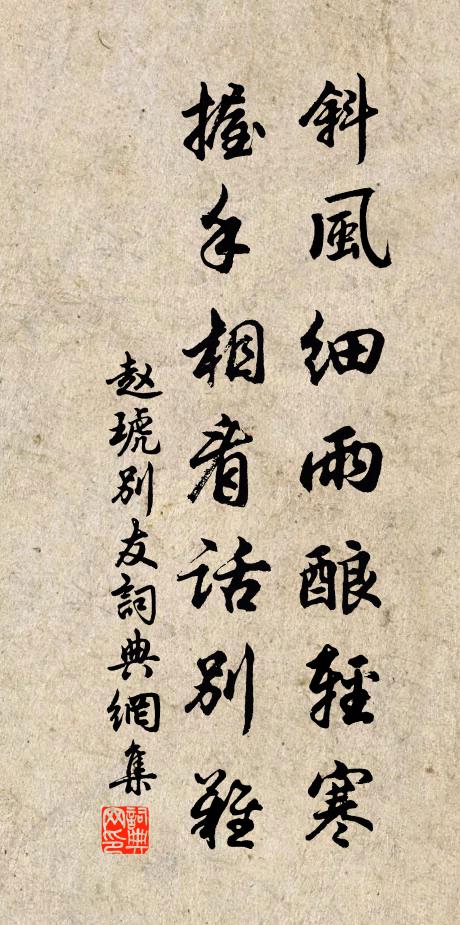 斜風細雨酿輕寒
握手相看話别難
赵琥别友詞典網集
詞典网印